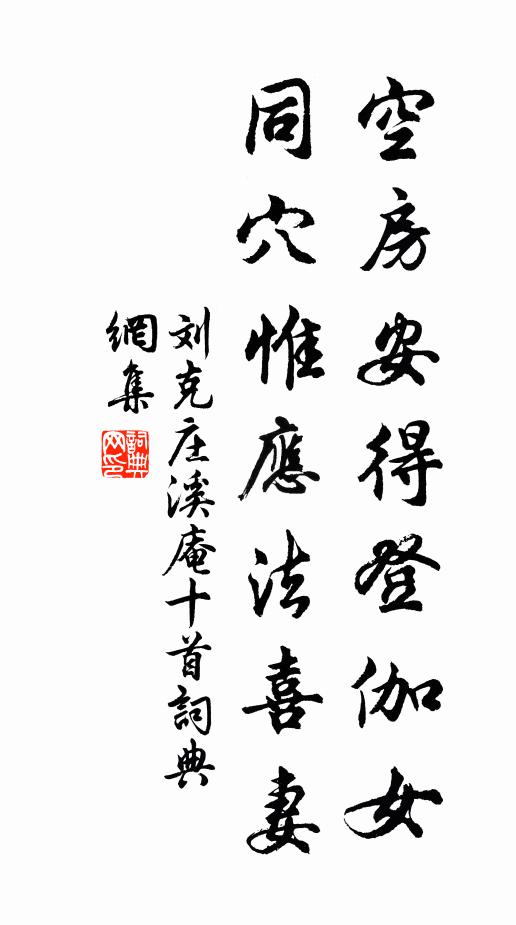 空房安得登伽女
同穴惟應法喜妻
刘克庄溪庵十首詞典
網集
詞典
网印